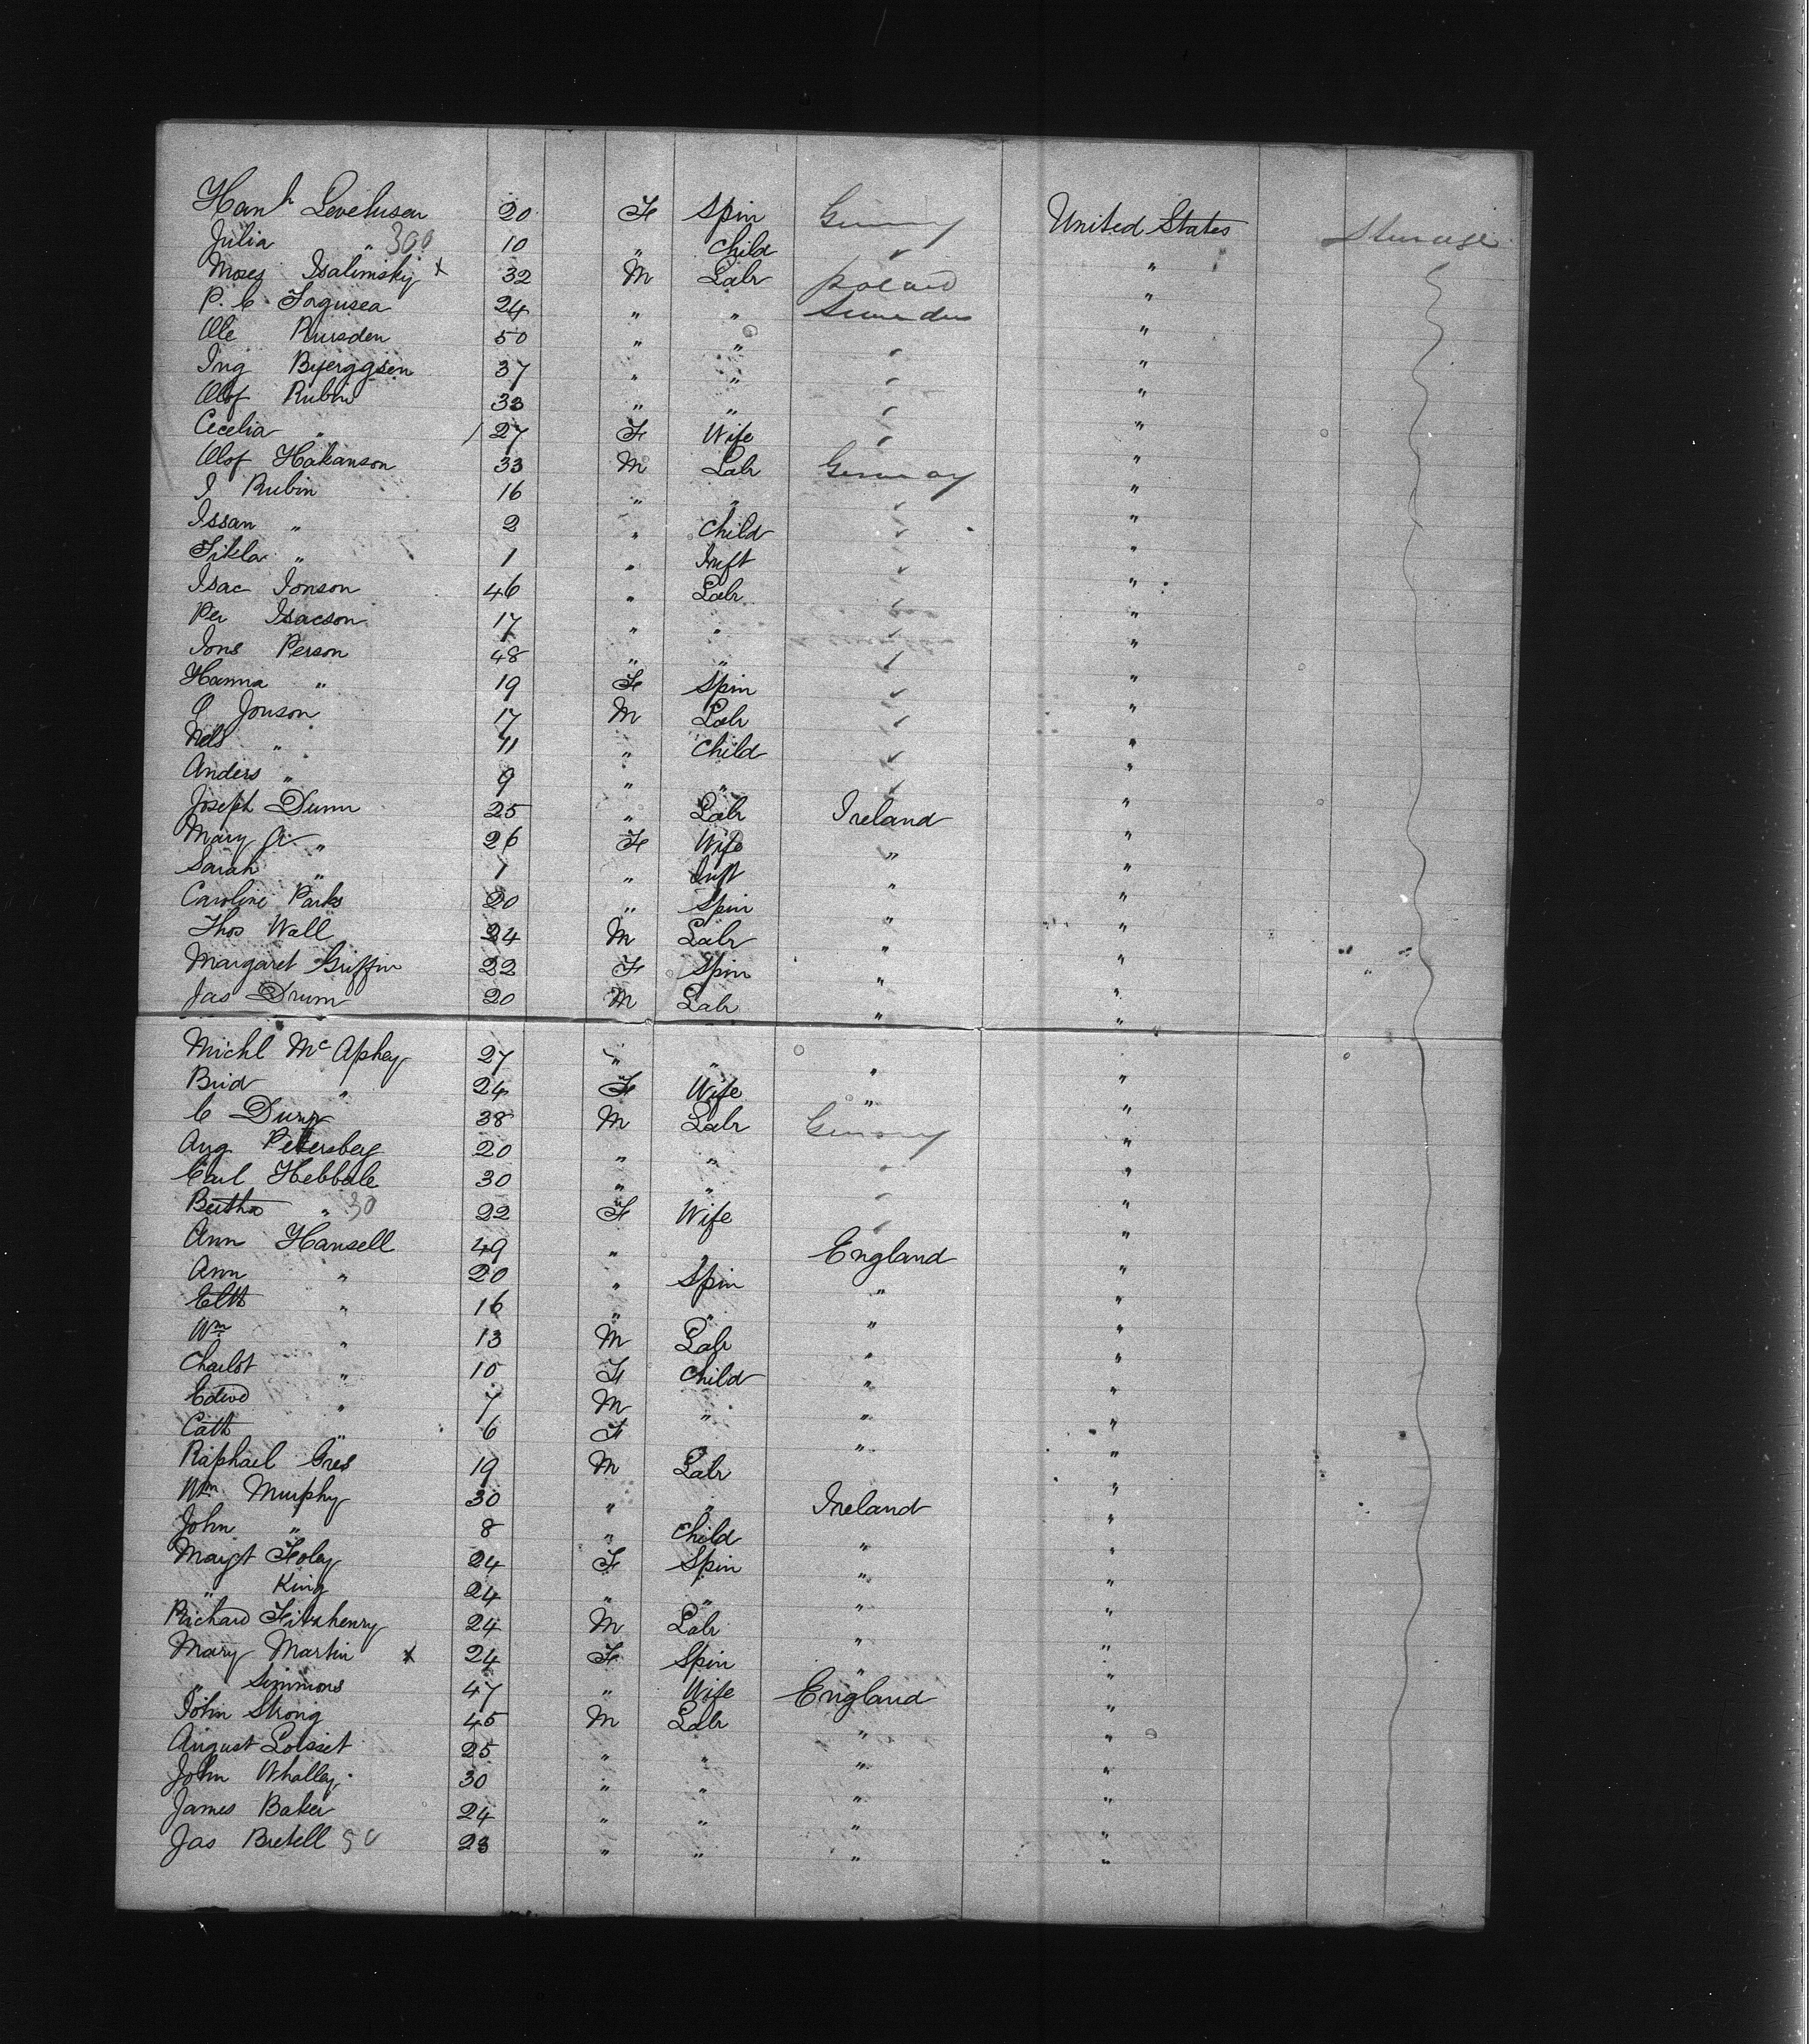 Hanh Levelusen 20 F Spin Germny United States Steerage
Julia " 300 10 " Child " "
Moses Isalimsky x 32 M Labr Poland "
P. C. Fagusea 24 " " Sweden "
Ole Rusden 50 " " " "
Ing Byerggsen 37 " " " "
Olof Rubin 33 " " " "
Cecelia " 27 F Wife " "
Olof Hakanson 33 M Labr Germany "
I Rubin 16 " " " "
Issan " 2 " Child " "
Tikla " 1 " Inft " "
Isac Jonson 46 " Labr " "
Per Isacson 17 " " " "
Jons Person 48 " " " "
Hanna " 19 F Spin " "
O Jonson 17 M Labr " "
Nels " 11 " Child " "
Anders " 9 " " " "
Joseph Dunn 25 " Labr Ireland "
Mary Jr " 26 F Wife " "
Sarah " 1 " Inft " "
Caroline Parks 20 " Spin " "
Thos Wall 24 M Labr " "
Margaret Griffin 22 F Spin " "
Jas Drum 20 M Labr " "
Michl McAphey 27 " " " "
Brid " 24 F Wife " "
C Durr 38 M Labr Germany "
Aug Petersbey 20 " " " "
Carl Hebbele 30 " " " "
Bertha " 30 22 F Wife " "
Ann Hansell 49 " " England "
Ann " 20 " Spin " "
Elth " 16 " " " "
Wm " 13 M Labr " "
Charlot " 10 F Child " "
Edwd " 7 M " " "
Cath " 6 F " " "
Raphael Gres 19 M Labr "
Wm Murphy 30 " " Ireland "
John " 8 " Child " "
Margt Foley 24 F Spin " "
" King 24 " " " "
Richard Fitzhenry 24 M Labr " "
Mary Martin x 24 F Spin " "
" Simmons 47 " Wife England "
John Strong 45 M Labr " "
August Loisset 25 " " " "
John Whalley 30 " " " "
James Baker 24 " " " "
Jas Bretell 50 23 " " " "